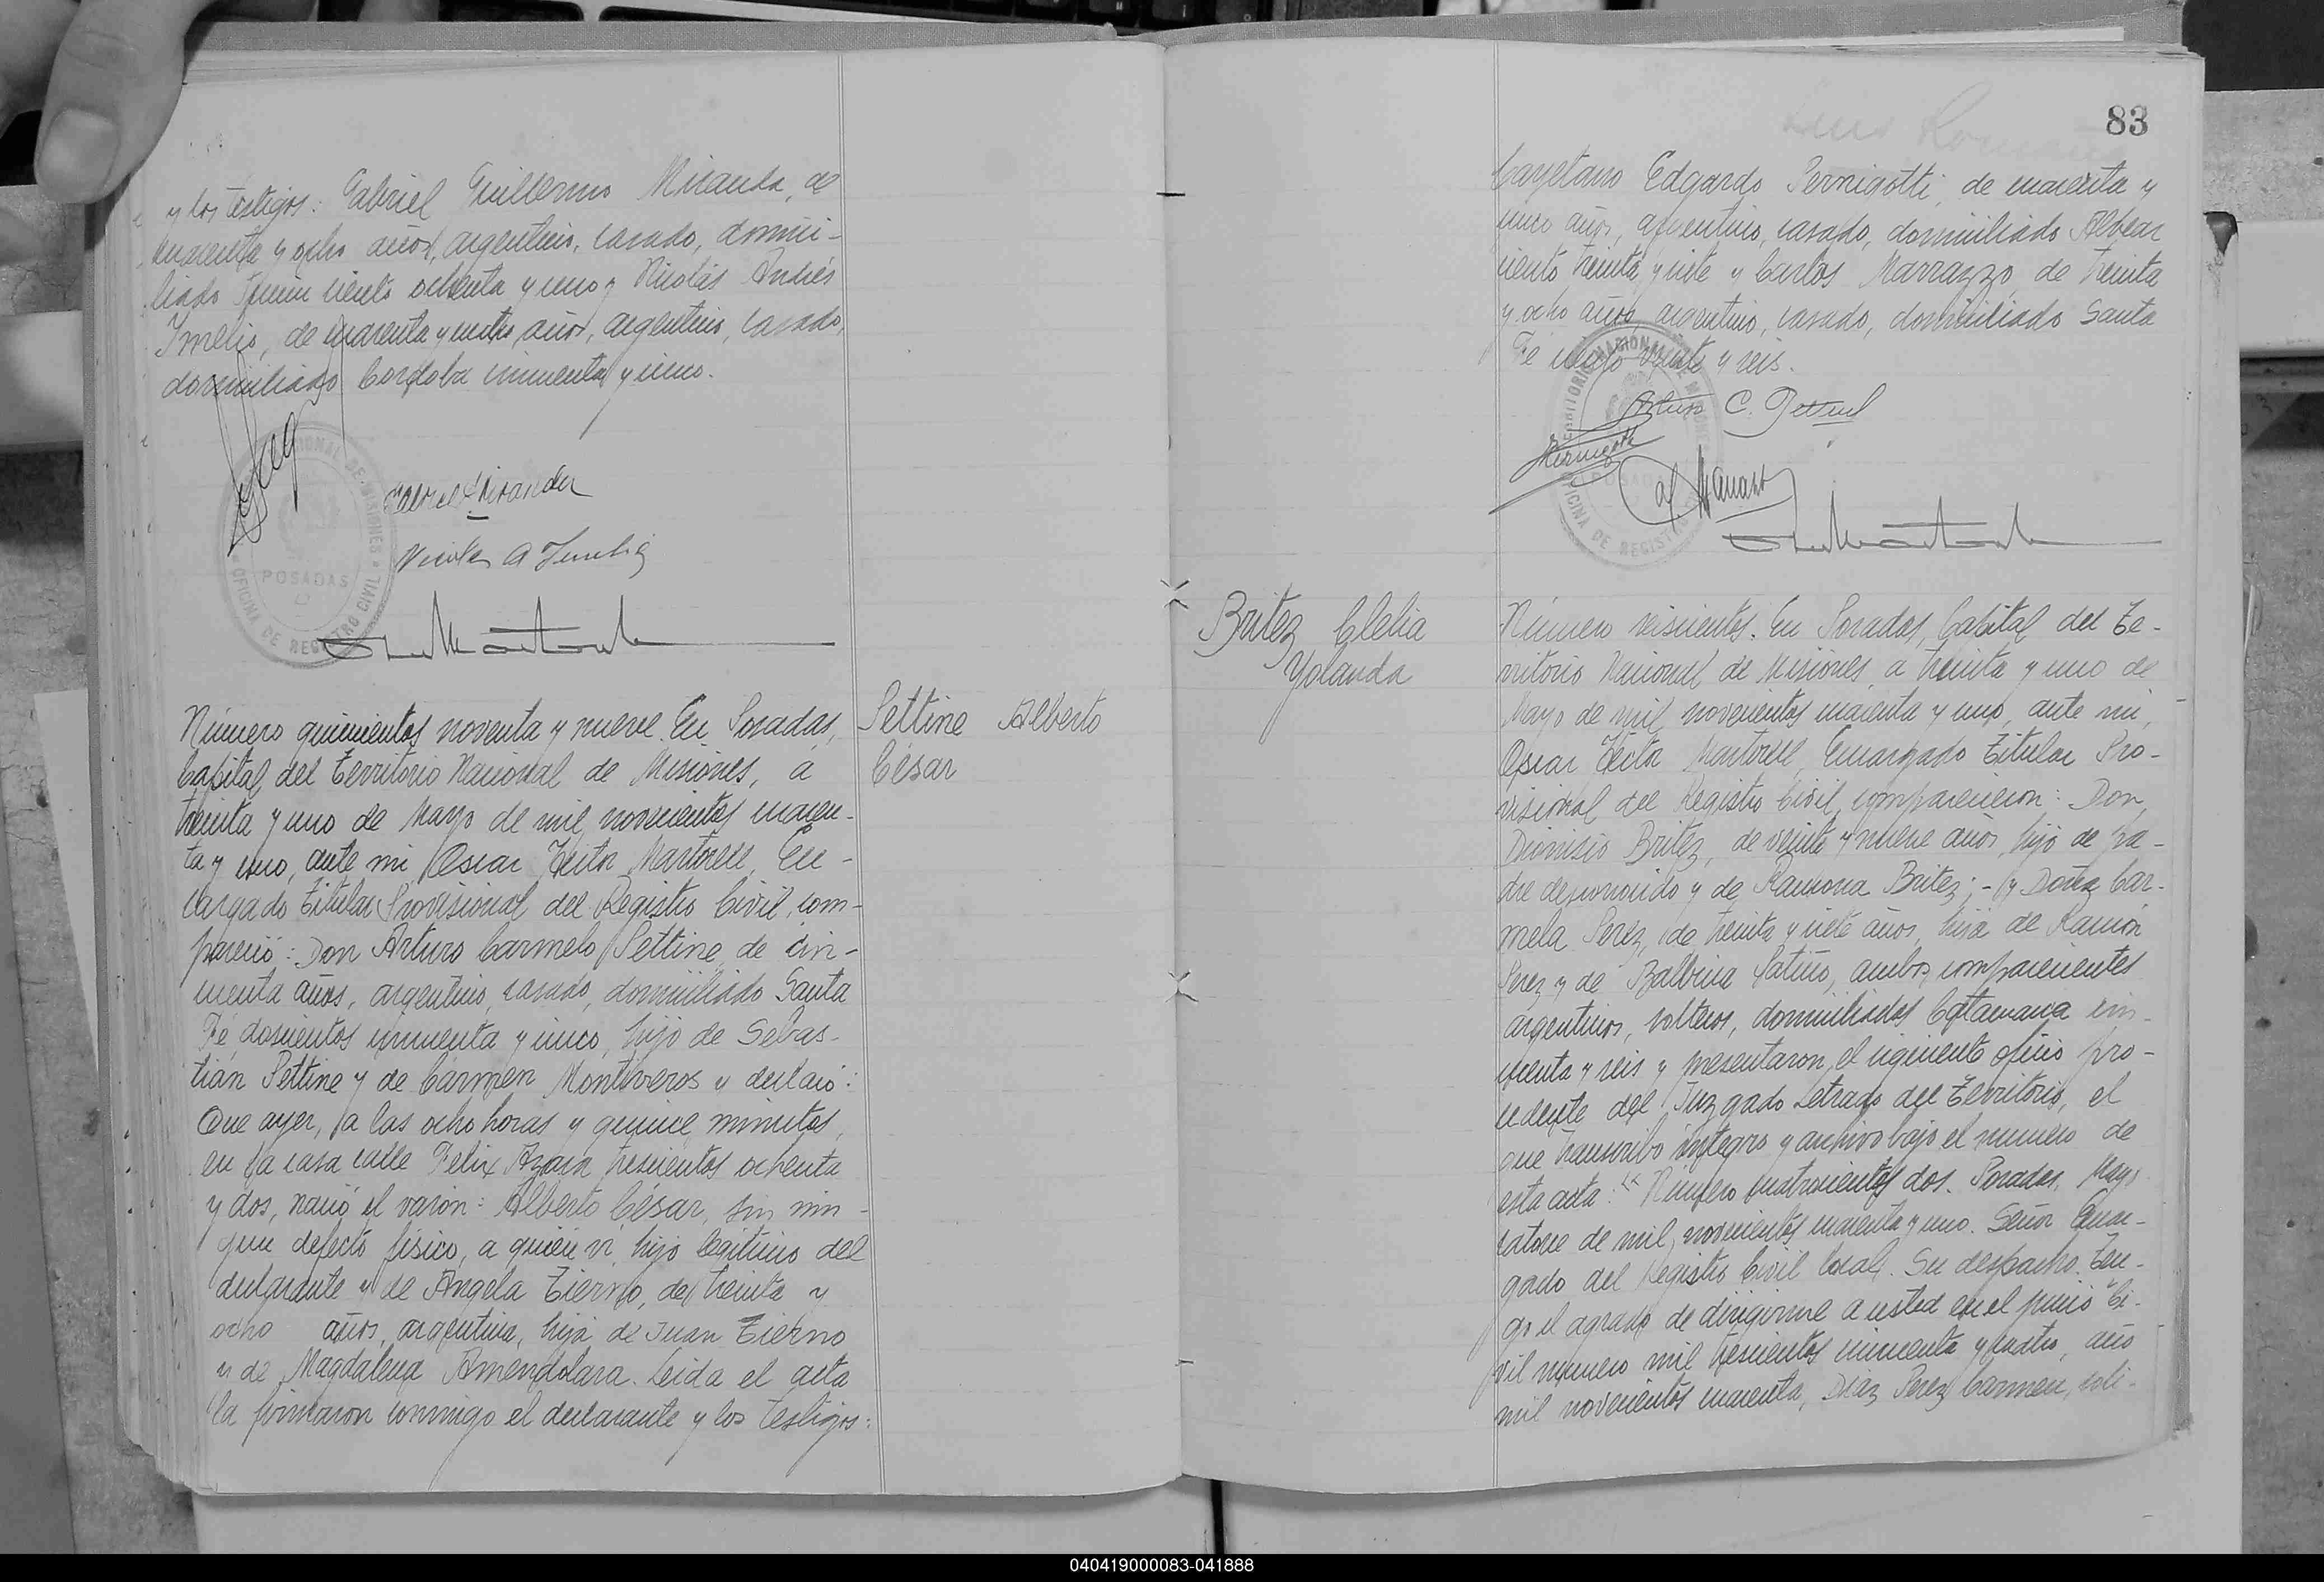 y los testigos: Gabriel Guillermo Miranda, de
cuarenta y ocho años, argentino, casado, domici-
liado Junin ciento ochenta y uno y Nicolás Andrés
Imelio, de cuarenta y cuatro años, argentino, casado,
domiciliado Cordoba cincuenta y cinco.
TERRITORIO NACIONAL DE MISIONES
POSADAS
OFICINA DE REGISTRO CIVIL
Gabriel Miranda
Nicolas A
Número quinientos noventa y nueve. En Posadas,
Capital del Territorio Nacional de Misiones, a
treinta y uno de Mayo de mil novecientos cuaren-
ta y uno, ante mi Oscar Héctor Martorell, En-
cargado Titular Provisional del Registro Civil, com-
pareció: Don Arturo Carmelo Pettine, de cin-
cuenta años, argentino, casado, domiciliado Santa
Fé doscientos cincuenta y cinco, hijo de Sebas-
tián Pettine y de Cármen Montiveros y declaró:
Que ayer, a las ocho horas y quince minutos,
en la casa calle Felix Azara trescientos ochenta
y dos, nació el varón: Alberto César, sin nin-
gun defecto físico, a quién vi, hijo legitimo del
declarante y de Angela Tierno, de treinta y
ocho años, argentina, hija de Juan Tierno
y de Magdalena Amendolara. Leida el acta
la firmaron conmigo el declarante y los testigos:
Pettine Alberto
César
83
Cayetano Edgardo Pernigotti, de cuarenta y
cinco años, argentino, casado, domiciliado Alvear
ciento treinta y siete y Carlos Marrazzo, de treinta
y ocho años, argentino, casado, domiciliado Santa
Fé ciento veinte y seis.
TERRITORIO NACIONAL DE MISIONES
POSADAS
OFICINA DE REGISTRO CIVIL
Arturo C. Pettine
Britez Clelia
Yolanda
Número seiscientos. En Posadas, Capital del Te-
rritorio Nacional de Misiones, a treinta y uno de
Mayo de mil novecientos cuarenta y uno, ante mi,
Oscar Héctor Martorell, Encargado Titular Pro-
visional del Registro Civil, comparecieron: Don
Dionisio Britez, de veinte y nueve años, hijo de pa-
dre desconocido y de Ramona Britez; - y Doña Car-
mela Perez, de treinta y siete años, hija de Ramón
Perez y de Balbina Patiño, ambos comparecientes
argentinos, solteros, domiciliados Catamarca cin-
cuenta y seis y presentaron el siguiente oficio pro-
cedente del Juzgado Letrado del Territorio, el
que transcribo integro y archivo bajo el numero de
esta acta: "Número cuatrocientos dos. Posadas, Mayo
catorce de mil novecientos cuarenta y uno. Señor Encar-
gado del Registro Civil local. Su despacho. Ten-
go el agrado de dirigirme a usted en el juicio "Ci-
vil número mil trescientos cincuenta y cuatro, año
mil novecientos cuarenta, Diaz Perez Carmen, soli-
040419000083-041888